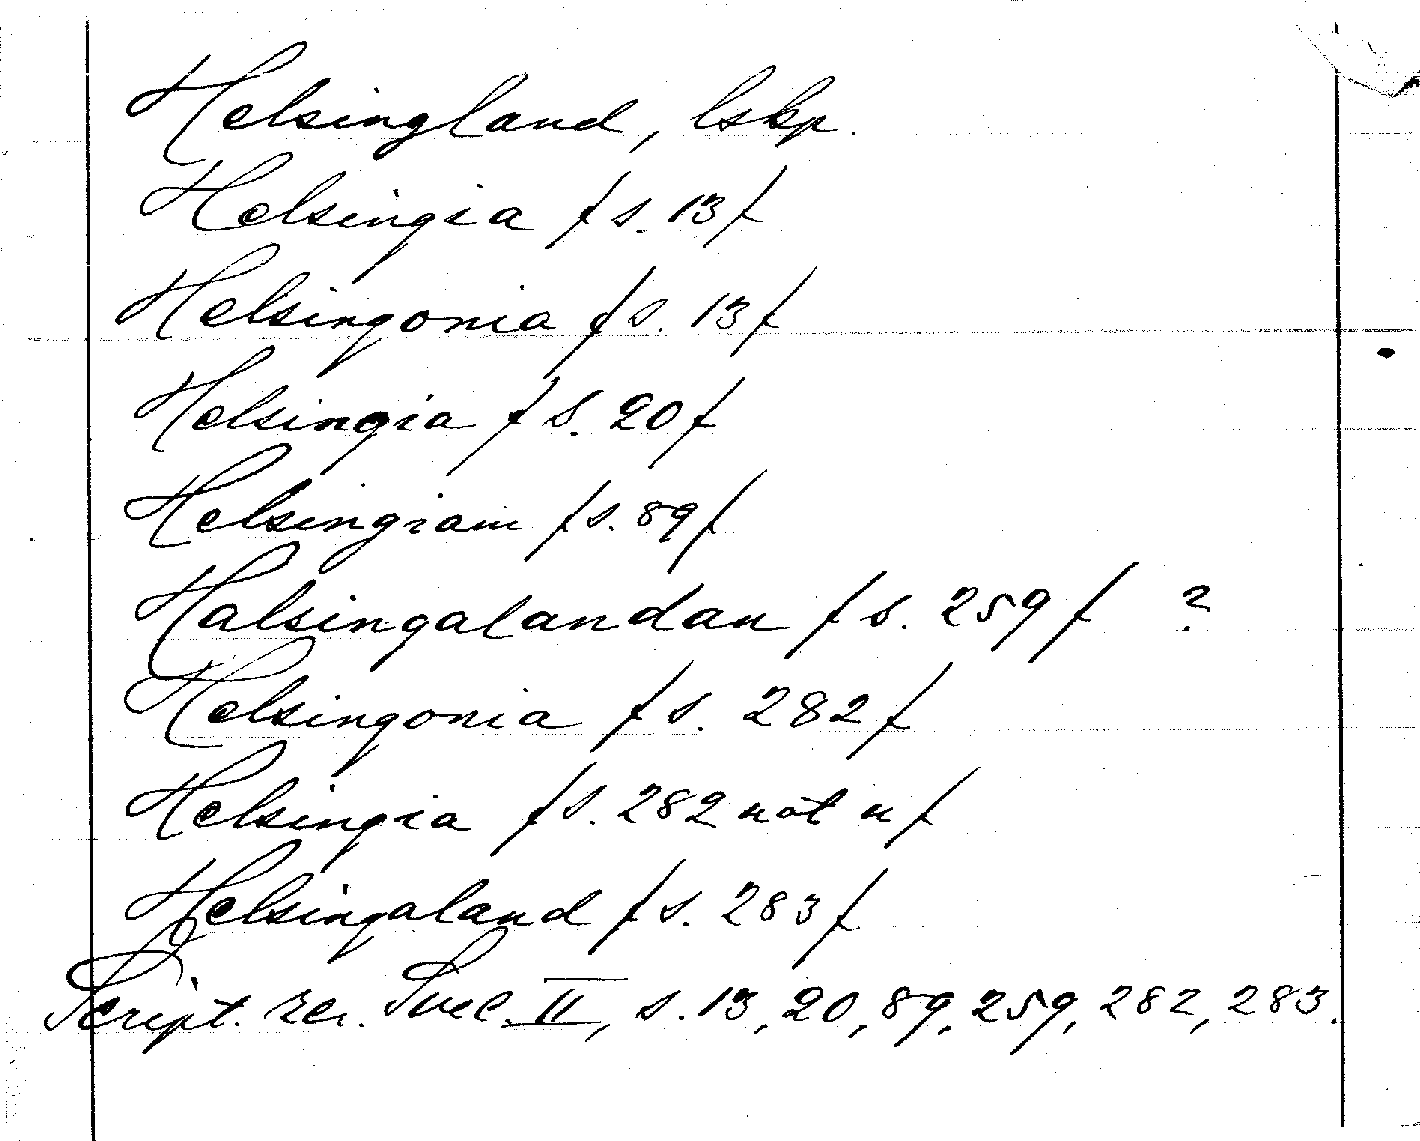 Helsingland, lskp.
Helsingia /s. 13/
Helsingonia /s. 13/
Helsingia /s. 20/
Helsingiam /s. 89/
Halsingalandan /s. 259/ ?
Helsingonia /s. 282/
Helsingia /s. 282 not n/
Helsingaland /s. 283/
Script. rer. Suec. II, s. 13, 20, 89, 259, 282, 283.